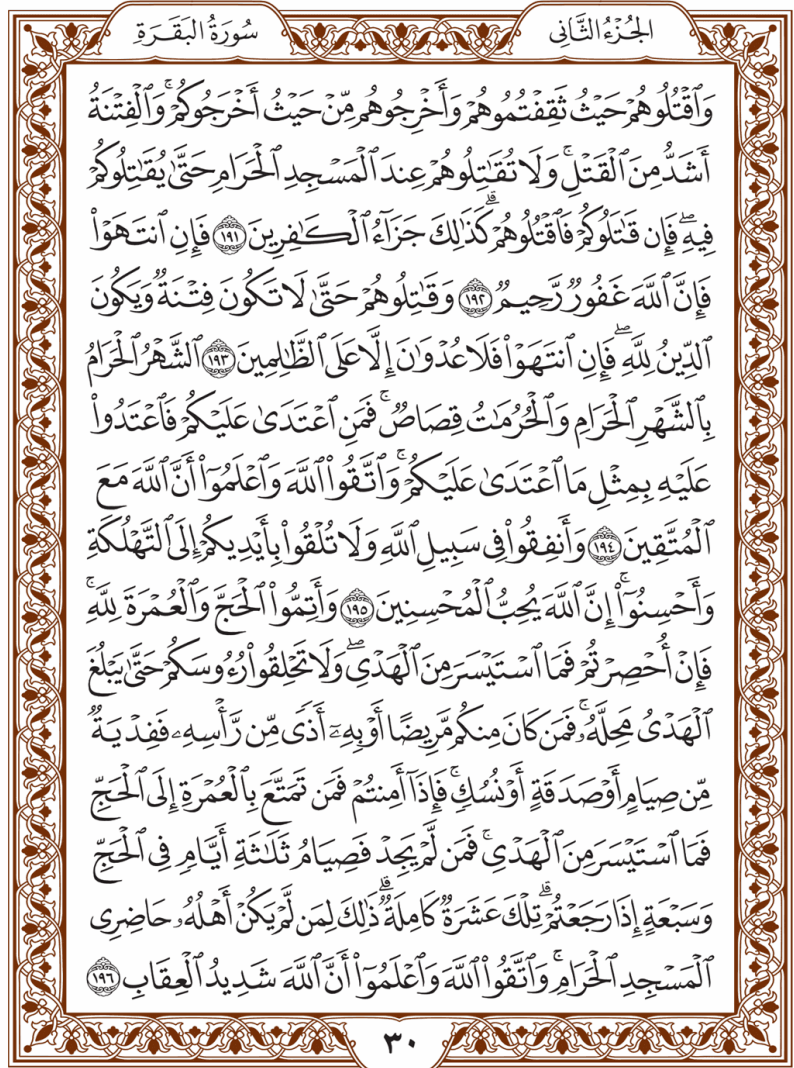 الجُزْءُ الثَّانِي
سُورَةُ البَقَرَةِ
وَٱقْتُلُوهُمْ حَيْثُ ثَقِفْتُمُوهُمْ وَأَخْرِجُوهُم مِّنْ حَيْثُ أَخْرَجُوكُمْ ۚ وَٱلْفِتْنَةُ
أَشَدُّ مِنَ ٱلْقَتْلِ ۚ وَلَا تُقَٰتِلُوهُمْ عِندَ ٱلْمَسْجِدِ ٱلْحَرَامِ حَتَّىٰ يُقَٰتِلُوكُمْ
فِيهِ ۖ فَإِن قَٰتَلُوكُمْ فَٱقْتُلُوهُمْ ۗ كَذَٰلِكَ جَزَآءُ ٱلْكَٰفِرِينَ ١٩١ فَإِنِ ٱنتَهَوْا۟
فَإِنَّ ٱللَّهَ غَفُورٌ رَّحِيمٌ ١٩٢ وَقَٰتِلُوهُمْ حَتَّىٰ لَا تَكُونَ فِتْنَةٌ وَيَكُونَ
ٱلدِّينُ لِلَّهِ ۖ فَإِنِ ٱنتَهَوْا۟ فَلَا عُدْوَٰنَ إِلَّا عَلَى ٱلظَّٰلِمِينَ ١٩٣ ٱلشَّهْرُ ٱلْحَرَامُ
بِٱلشَّهْرِ ٱلْحَرَامِ وَٱلْحُرُمَٰتُ قِصَاصٌ ۚ فَمَنِ ٱعْتَدَىٰ عَلَيْكُمْ فَٱعْتَدُوا۟
عَلَيْهِ بِمِثْلِ مَا ٱعْتَدَىٰ عَلَيْكُمْ ۚ وَٱتَّقُوا۟ ٱللَّهَ وَٱعْلَمُوٓا۟ أَنَّ ٱللَّهَ مَعَ
ٱلْمُتَّقِينَ ١٩٤ وَأَنفِقُوا۟ فِى سَبِيلِ ٱللَّهِ وَلَا تُلْقُوا۟ بِأَيْدِيكُمْ إِلَى ٱلتَّهْلُكَةِ
وَأَحْسِنُوٓا۟ ۛ إِنَّ ٱللَّهَ يُحِبُّ ٱلْمُحْسِنِينَ ١٩٥ وَأَتِمُّوا۟ ٱلْحَجَّ وَٱلْعُمْرَةَ لِلَّهِ ۚ
فَإِنْ أُحْصِرْتُمْ فَمَا ٱسْتَيْسَرَ مِنَ ٱلْهَدْىِ ۖ وَلَا تَحْلِقُوا۟ رُءُوسَكُمْ حَتَّىٰ يَبْلُغَ
ٱلْهَدْىُ مَحِلَّهُۥ ۚ فَمَن كَانَ مِنكُم مَّرِيضًا أَوْ بِهِۦٓ أَذًى مِّن رَّأْسِهِۦ فَفِدْيَةٌ
مِّن صِيَامٍ أَوْ صَدَقَةٍ أَوْ نُسُكٍ ۚ فَإِذَآ أَمِنتُمْ فَمَن تَمَتَّعَ بِٱلْعُمْرَةِ إِلَى ٱلْحَجِّ
فَمَا ٱسْتَيْسَرَ مِنَ ٱلْهَدْىِ ۚ فَمَن لَّمْ يَجِدْ فَصِيَامُ ثَلَٰثَةِ أَيَّامٍ فِى ٱلْحَجِّ
وَسَبْعَةٍ إِذَا رَجَعْتُمْ ۗ تِلْكَ عَشَرَةٌ كَامِلَةٌ ۗ ذَٰلِكَ لِمَن لَّمْ يَكُنْ أَهْلُهُۥ حَاضِرِى
ٱلْمَسْجِدِ ٱلْحَرَامِ ۚ وَٱتَّقُوا۟ ٱللَّهَ وَٱعْلَمُوٓا۟ أَنَّ ٱللَّهَ شَدِيدُ ٱلْعِقَابِ ١٩٦
٣٠